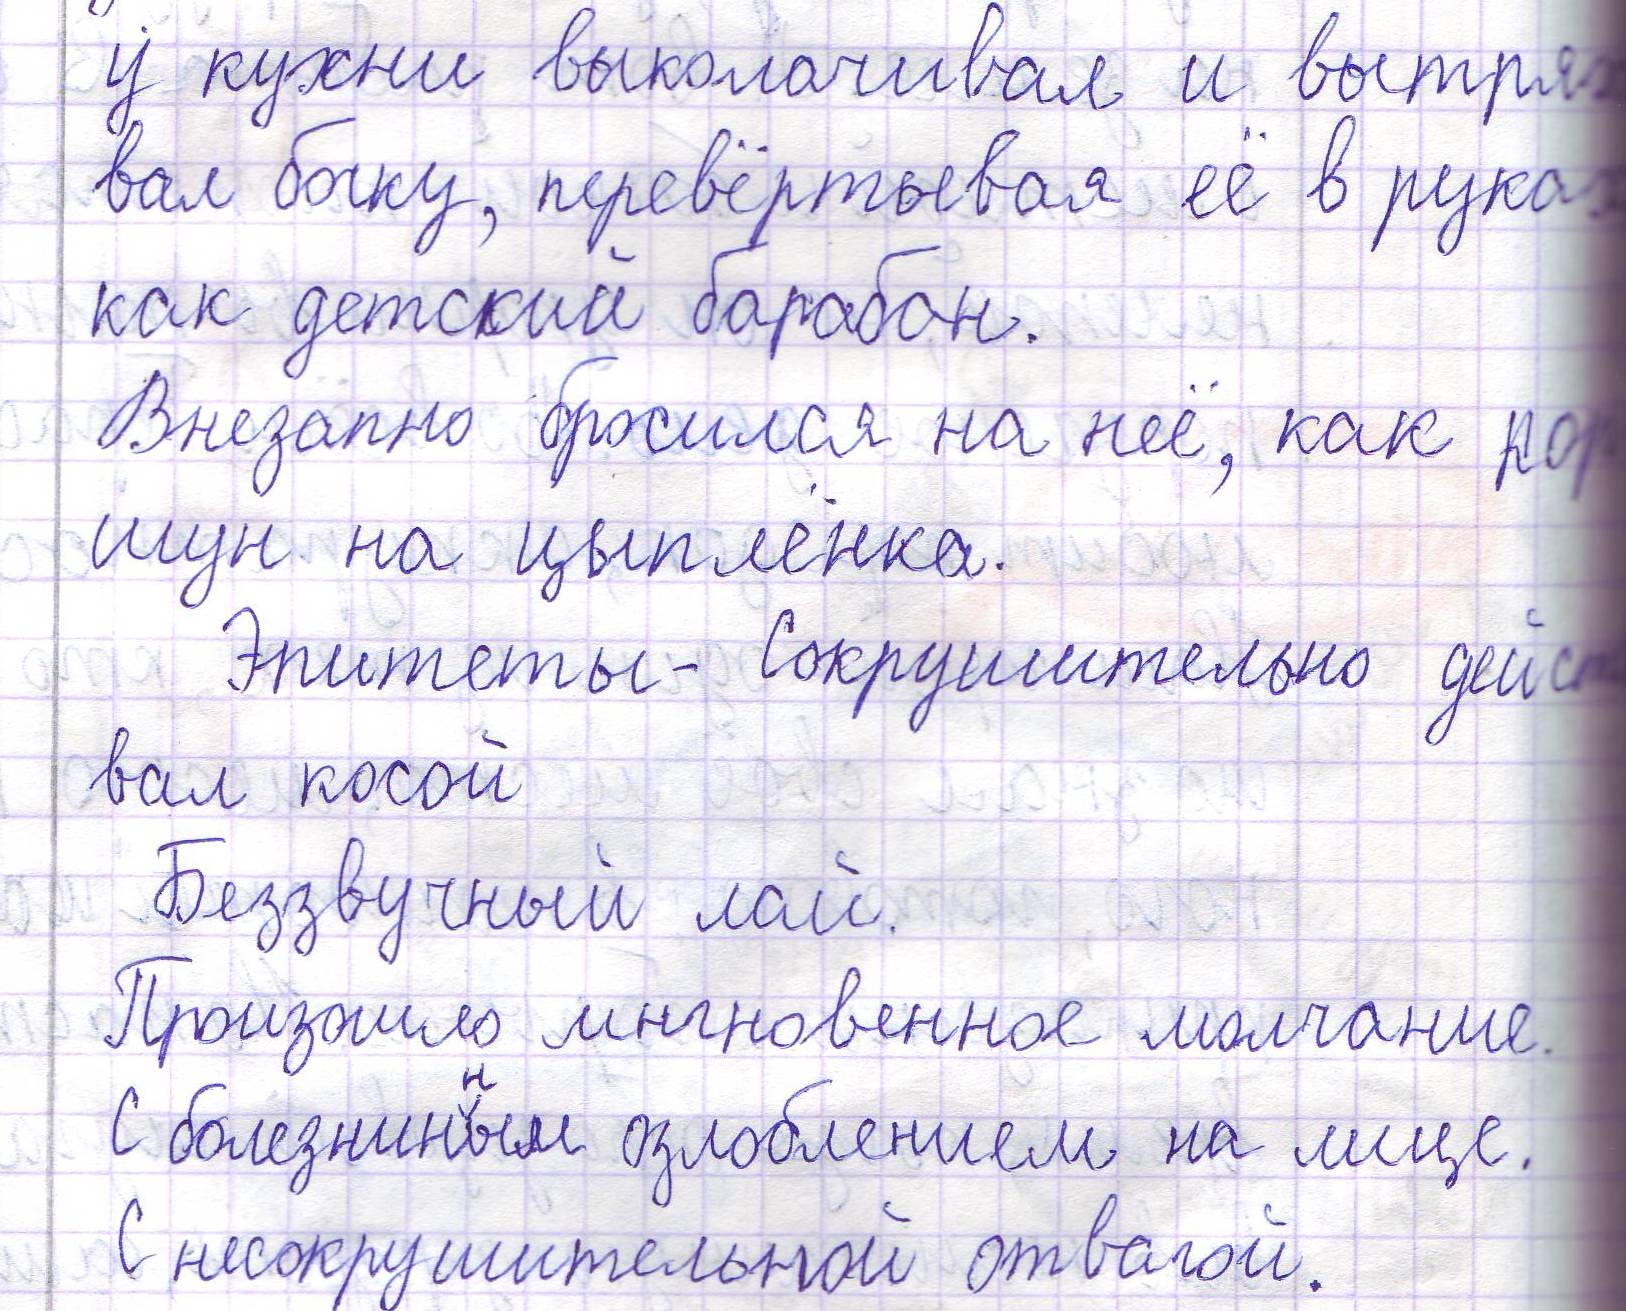 у кухни выколачивал и вытрях
вал бочку, перевёртывая её в руках
как детский барабан.
Внезапно бросился на неё, как кор
шун на цыплёнка.
Эпитеты - Сокрушительно дейст
вал косой
Беззвучный лай.
Произошло мнгновенное молчание.
С болезнинным озлоблением на лице.
С несокрушительной отвагой.